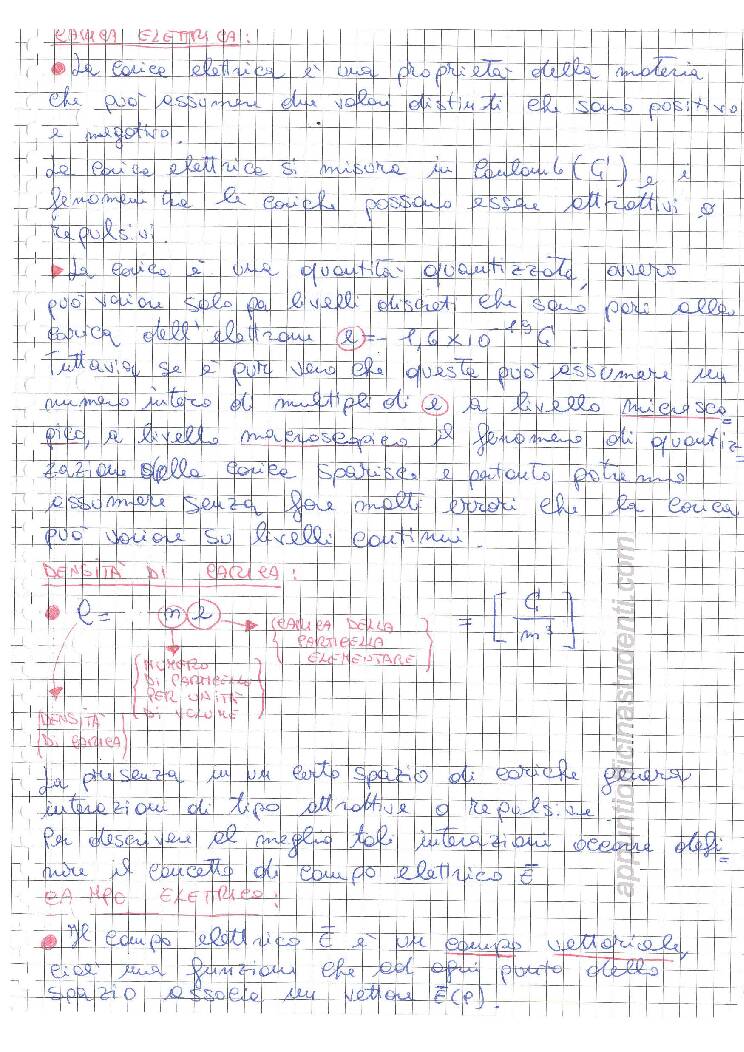 CARICA ELETTRICA:
La carica elettrica è una proprietà della materia
che può assumere due valori distinti che sono positivo
e negativo.
La carica elettrica si misura in Coulomb (C) e i
fenomeni tra le cariche possono essere attrattivi o
repulsivi.
La carica è una quantità quantizzata, ovvero
può variare solo per livelli discreti che sono pari alla
carica dell'elettrone e = - 1,6 x 10^-19 C.
Tuttavia, se è pur vero che questa può assumere un
numero intero di multipli di e a livello microsco=
pico, a livello macroscopico il fenomeno di quantiz=
zazione della carica sparisce e pertanto potremo
assumere senza fare molti errori che la carica
può variare su livelli continui.
DENSITÀ DI CARICA:
ρ = n e = [C/m³]
CARICA DELLA
PARTICELLA
ELEMENTARE
NUMERO
DI PARTICELLE
PER UNITÀ
DI VOLUME
DENSITÀ
DI CARICA
La presenza in un certo spazio di cariche genera
interazioni di tipo attrattive o repulsive.
Per descrivere al meglio tali interazioni occorre defi=
nire il concetto di campo elettrico E̅
CAMPO ELETTRICO:
Il campo elettrico E̅ è un campo vettoriale,
cioè una funzione che ad ogni punto dello
spazio associa un vettore E̅(P).
appuntiofficinastudenti.com